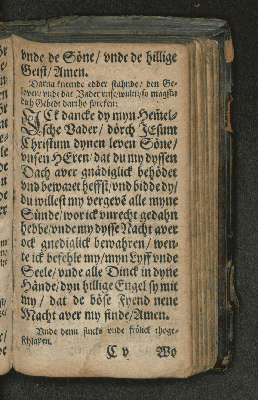 vnde de Söne/ vnde de hillige
Geist/ Amen.
Darna kneende edder stahnde/ den Ge-
loven/ vnde dat Vader vnse/ wultu so magstu
düth Gebedt dartho spreken:
ICk dancke dy myn Hemmel-
sche Vader/ dörch Jesum
Christum dynen leven Söne/
vnsen HEren/ dat du my dyssen
Dach aver gnädiglick behödet
vnd bewaret heffst/ vnd bidde dy/
du willest my vergeve alle myne
Sünde/ wor ick vnrecht gedahn
hebbe/ vnde my dysse Nacht aver
ock gnediglick bewahren/ wen-
te ick befehle my/ myn Lyff vnde
Seele/ vnde alle Dinck in dyne
Hände/ dyn hillige Engel sy mit
my/ dat de böse Fyend nene
Macht aver my finde/ Amen.
Vnde denn flucks vnde frölick thoge-
schlapen.
C v Wo